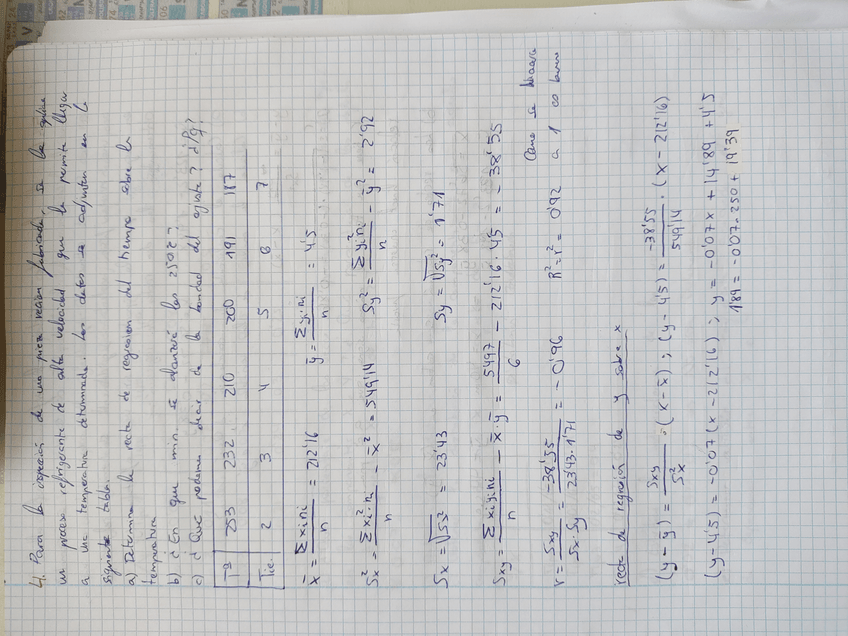 4. Para la creación de una pieza recien fabricada, se le aplica
un proceso refrigerante de alta velocidad que le permite llegar
a una temperatura determinada. Los datos se adjuntan en la
siguiente tabla.
a) Determina la recta de regresión del tiempo sobre la
temperatura
b) ¿En que min se alcanzó los 250º?
c) ¿Qué podemos decir de la bondad del ajuste?
Tª 253 232 210 200 191 187
Tie. 2 3 4 5 6 7
x̄ = Σxini / n = 212'16 ȳ = Σyini / n = 4'5
Sx² = Σxi²·ni / n - x̄² = 549'14 Sy² = Σyi²ni / n - ȳ² = 2'92
Sx = √Sx² = 23'43 Sy = √Sy² = 1'71
Sxy = Σxiyini / n - x̄·ȳ = 5497 / 6 - 212'16·4'5 = -38'55
r = Sxy / Sx·Sy = -38'55 / 23'43·1'71 = -0'96 R²=r² = 0'92 Como se
a 1 es bueno
recta de regresión de y sobre x
(y-ȳ) = Sxy / Sx² · (x-x̄) ; (y-4'5) = -38'55 / 549'14 · (x-212'16)
(y-4'5) = -0'07(x-212'16) ; y = -0'07x + 14'89 + 4'5
1'89 = -0'07·250 + 19'39